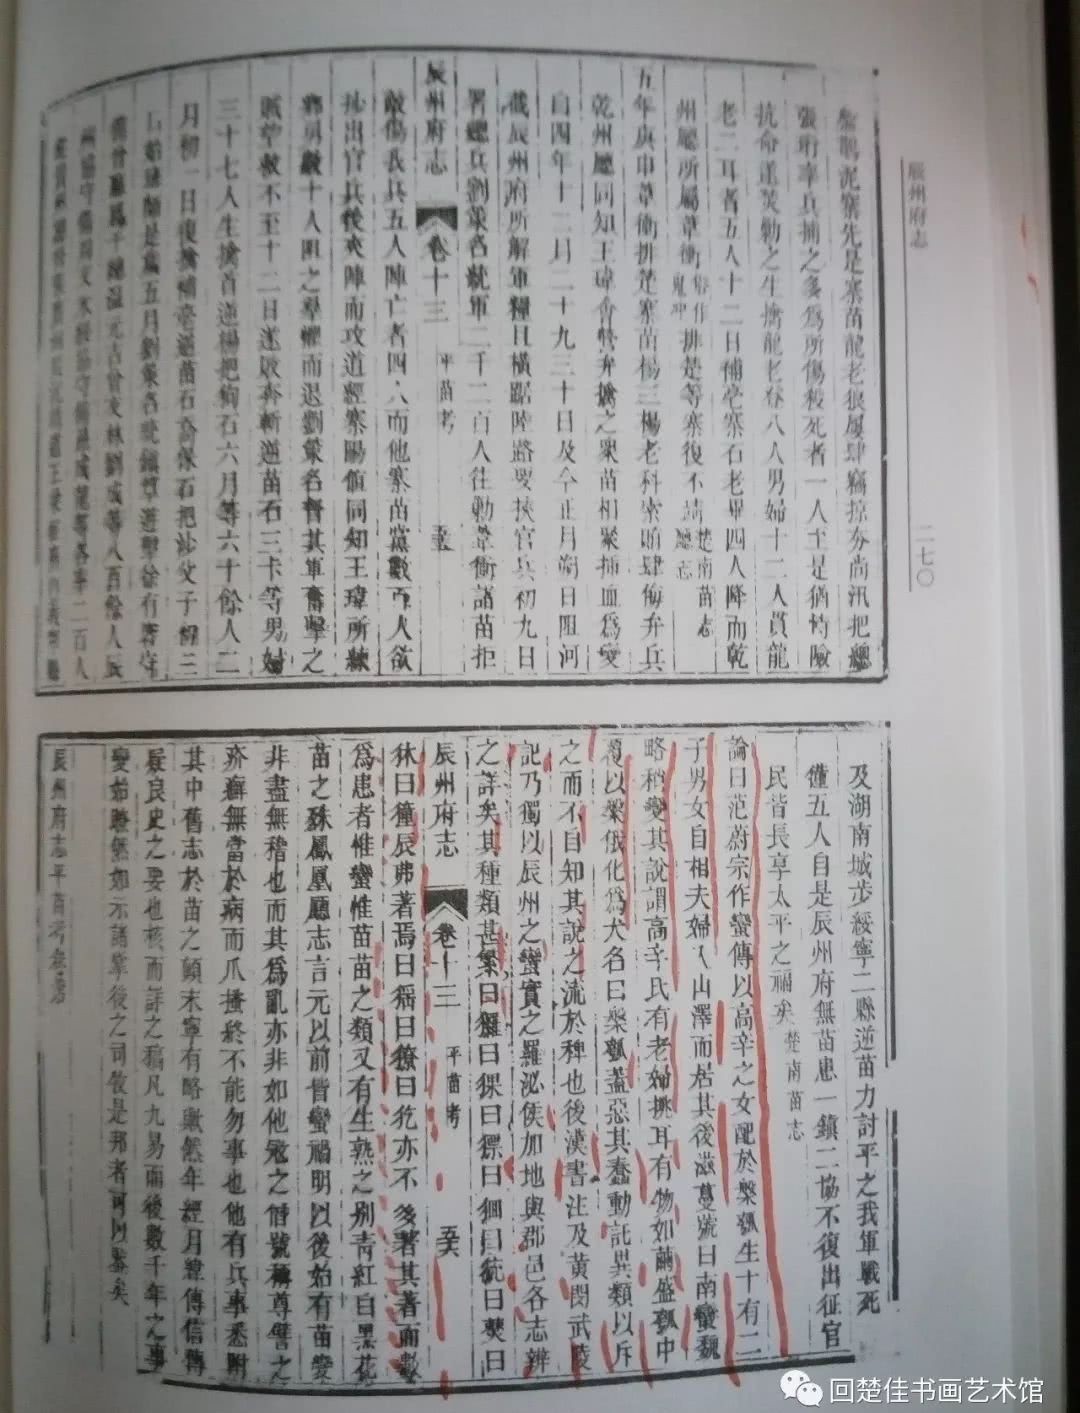 辰州府志
二七〇
詹鵲泥寨先是寨苗龍老狼屢肆竊掠夯尚汛把總
張珩率兵捕之多爲所傷殺死者一人至是猶恃險
抗命遂發勦之生擒龍老春八人男婦十二人貫龍
老二耳者五人十二日補亳寨石老畢四人降而乾
州廳所屬葦衝俗作鬼冲排楚等寨復不靖楚南苗志廳志
五年庚申葦衝排楚寨苗楊三楊老科索頭肆侮弁兵
乾州廳同知王瑋會營弁擒之衆苗相聚揷血爲變
自四年十二月二十九三十日及今正月朔日阻河
截辰州府所解軍糧且橫踞陸路要挾官兵初九日
署總兵劉策名統軍二千二百人往勦葦衝諸苗拒
辰州府志
卷十三
平苗考
敵傷我兵五人陣亡者四人而他寨苗黨數百人欲
抄出官兵後夾陣而攻道經寨陽値同知王瑋所練
鄉勇數十人阻之羣懼而退劉策名督其軍奮擊之
賊望救不至十二日遂敗奔斬逆苗石三卡等男婦
三十七人生擒首逆楊把狗石六月等六十餘人二
月初一日復擒補亳逆苗石喬保石把沙父子輝三
及湖南城步綏寧二縣逆苗力討平之我軍戰死
僅五人自是辰州府無苗患一鎮二協不復出征官
民皆長享太平之福矣楚南苗志
論曰范蔚宗作蠻傳以高辛之女配於槃瓠生十有二
子男女自相夫婦入山澤而居其後滋蔓號曰南蠻魏
略稍變其說謂高辛氏有老婦挑耳有物如繭盛瓠中
覆以槃俄化爲犬名曰槃瓠蓋惡其蠢動託異類以斥
之而不自知其說之流於稗也後漢書注及黃閔武陵
記乃獨以辰州之蠻實之羅泌侯加地與郡邑各志辨
之詳矣其種類甚繁曰玀曰猓曰猽曰狪曰狁曰僰曰
辰州府志
卷十三
平苗考
㹯曰獞辰弗著焉曰猺曰獠曰犵亦不多著其著而數
爲患者惟蠻惟苗苗之類又有生熟之別靑紅白黑花
苗之殊鳳凰廳志言元以前皆蠻禍明以後始有苗變
非盡無稽也而其爲亂亦非如他寇之僭號稱尊譬之
疥癬無當於病而爪搔終不能勿事也他有兵事悉附
其中舊志於苗之顚末寧有略歟然年經月緯傳信傳
疑良史之要也核而詳之稿凡九易而後數千年之事
變始瞭然如示諸掌後之司牧是邦者可以鑒矣
辰州府志平苗考卷終
回楚佳书画艺术馆